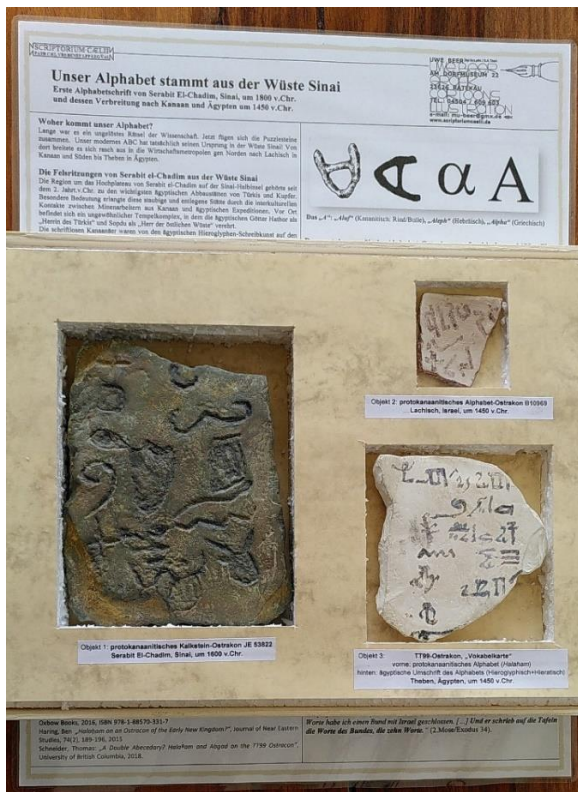 SCRIPTORIUM CÆLII
Unser Alphabet stammt aus der Wüste Sinai
Erste Alphabetschrift von Serabit El-Chadim, Sinai, um 1800 v.Chr.
und dessen Verbreitung nach Kanaan und Ägypten um 1450 v.Chr.
UWE BEER
AM DORFMUSEUM 23
23626 RATEKAU
TEL: 04504 / 609 603
www.scriptoriumcaelii.de
Woher kommt unser Alphabet?
Lange war es ein ungelöstes Rätsel der Wissenschaft. Jetzt fügen sich die Puzzleteine
zusammen. Unser modernes ABC hat tatsächlich seinen Ursprung in der Wüste Sinai! Von
dort breitete es sich rasch aus in die Wirtschaftsmetropolen gen Norden nach Lachisch in
Kanaan und Süden bis Theben in Ägypten.
Die Felsritzungen von Serabit el-Chadim aus der Wüste Sinai
Die Region um das Hochplateau von Serabit el-Chadim auf der Sinai-Halbinsel gehörte seit
dem 2. Jahrt.v.Chr. zu den wichtigsten ägyptischen Abbaustätten von Türkis und Kupfer.
Besondere Bedeutung erlangte diese staubige und entlegene Stätte durch die interkulturellen
Kontakte zwischen Minenarbeitern aus Kanaan und ägyptischen Expeditionen. Vor Ort
befindet sich ein ungewöhnlicher Tempelkomplex, in dem die ägyptischen Götter Hathor als
„Herrin des Türkis" und Sopdu als „Herr der östlichen Wüste" verehrt.
Die schriftlosen Kanaaniter waren von den ägyptischen Hieroglyphen-Schreibkunst auf den
α A
Das „A": „Alef" (Kanaanitisch: Rind/Bulle), „Aleph" (Hebräisch), „Alpha" (Griechisch)
Objekt 2: protokanaanitisches Alphabet-Ostrakon B10969
Lachisch, Israel, um 1450 v.Chr.
Objekt 1: protokanaanitisches Kalkstein-Ostrakon JE 53822
Serabit El-Chadim, Sinai, um 1600 v.Chr.
Objekt 3: TT99-Ostrakon, „Vokabelkarte"
vorne: protokanaanitisches Alphabet (Halaham)
hinten: ägyptische Umschrift des Alphabets (Hieroglyphisch+Hieratisch)
Theben, Ägypten, um 1450 v.Chr.
Oxbow Books, 2016, ISBN 978-1-88570-331-7
Haring, Ben „Halaḥam on an Ostracon of the Early New Kingdom?", Journal of Near Eastern
Studies, 74(2), 189-196, 2015
Schneider, Thomas: „A Double Abecedary? Halaḥam and Abgad on the TT99 Ostracon",
University of British Columbia, 2018.
Worte habe ich einen Bund mit Israel geschlossen. [...] Und er schrieb auf die Tafeln
die Worte des Bundes, die zehn Worte." (2.Mose/Exodus 34).